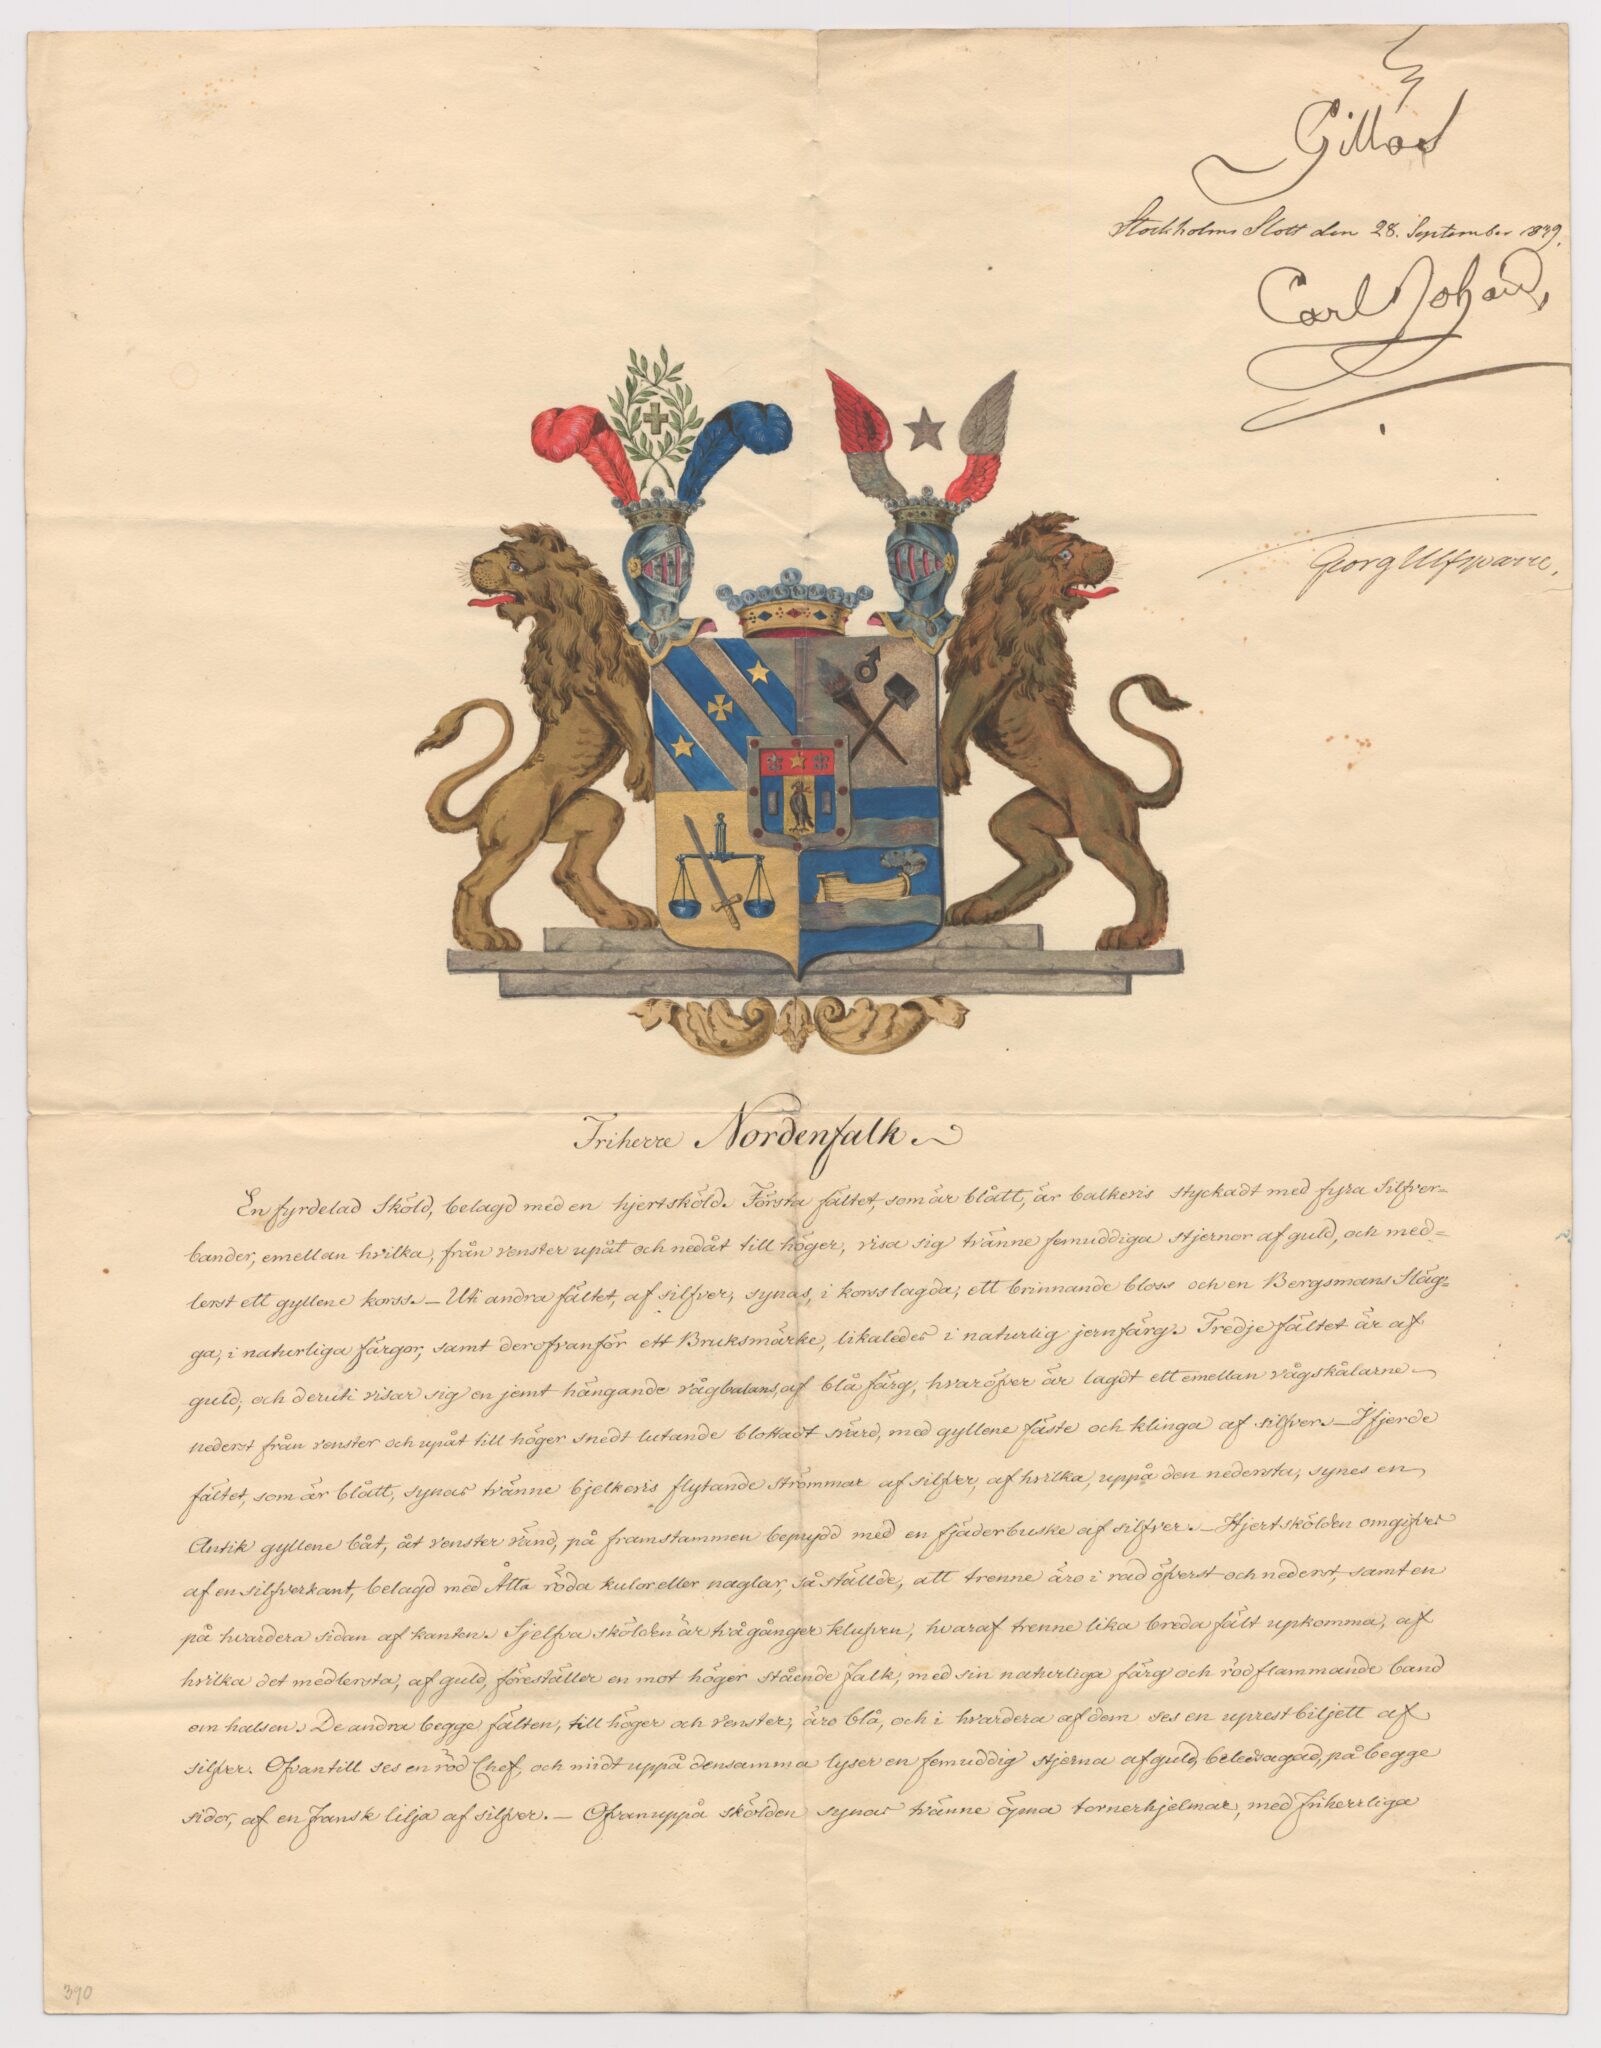 Gillas
Stockholms Slott den 28. September 1839.
Carl Johan
Georg Ulfsparre.
Friherre Nordenfalk.
En fyrdelad Sköld, belagd med en hjertsköld. Första fältet, som är blått, är balkevis styckadt med fyra Silfver-
bander, emellan hvilka, från venster upåt och nedåt till höger, visa sig tränne femuddiga stjernor af guld, och med-
lerst ett gyllene korss. — Uti andra fältet, af silfver, synas, i korsslagda, ett brinnande bloss och en Bergsmans Släg-
ga, i naturliga färgor, samt derofvanför ett Bruksmärke, likaledes i naturlig jernfärg. Tredje fältet är af
guld, och deruti visar sig en jemt hängande vågbalans, af blå färg, hvaröfver är lagdt ett emellan vågskålarne
nederst från venster och upåt till höger snedt lutande blottadt svärd, med gyllene fäste och klinga af silfver. — I fjerde
fältet, som är blått, synas tränne bjelkevis flytande strömmar af silfver, af hvilka, uppå den nedersta, synes en
Antik gyllene båt, åt venster vänd, på framstammen beprydd med en fjäderbuske af silfver. — Hjertskölden omgifves
af en silfverkant, belagd med Åtta röda kulor eller naglar, så ställde, att trenne äro i rad öfverst och nederst, samt en
på hvardera sidan af kanten. Sjelfva skölden är två gånger klufven, hvaraf trenne lika breda fält upkomma, af
hvilka det medlersta, af guld, föreställer en mot höger stående falk, med sin naturliga färg och röd flammande band
om halsen. De andra begge fälten, till höger och venster, äro blå, och i hvardera af dem ses en uprest biljett af
silfver. Ofvantill ses en röd Chef, och midt uppå densamma lyser en femuddig stjerna af guld, beledsagad, på begge
sidor, af en fransk lilja af silfver. — Ofvanuppå skölden synas tränne öpna tornerhjelmar, med friherrliga
390